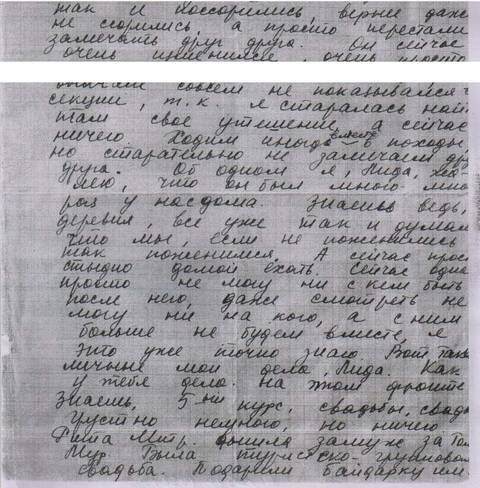 так и поссорились, верние даже
не ссорились, а просто перестали
замечать друг друга. Он сейчас
очень изменился, очень просто
совсем не показывался
секции, т.к. я старалась найт
там свое утешение, а сейчас
ничего. Ходим иногда вместе в походы,
но старательно не замечаем дру
друга. Об одном я, Лида, жа-
лею, что он был много-мно
раз у нас дома. Знаешь ведь,
деревня, все уже так и думал
что мы, если не поженились
так поженимся. А сейчас прос
стыдно домой ехать. Сейчас одне
просто не могу ни с кем быть
после него, даже смотреть не
могу ни на кого, а с ним
больше не будем вместе, я
это уже точно знаю. Вот так
личные мои дела, Лида. Как
у тебя дела на этом фронте
Знаешь, 5-ый курс, свадьбы, свадь
Грустно немного, но ничего
Рита Митр. вышла замуж за
Мур. Была туристско-групповая
свадьба. Подарили байдарку им.